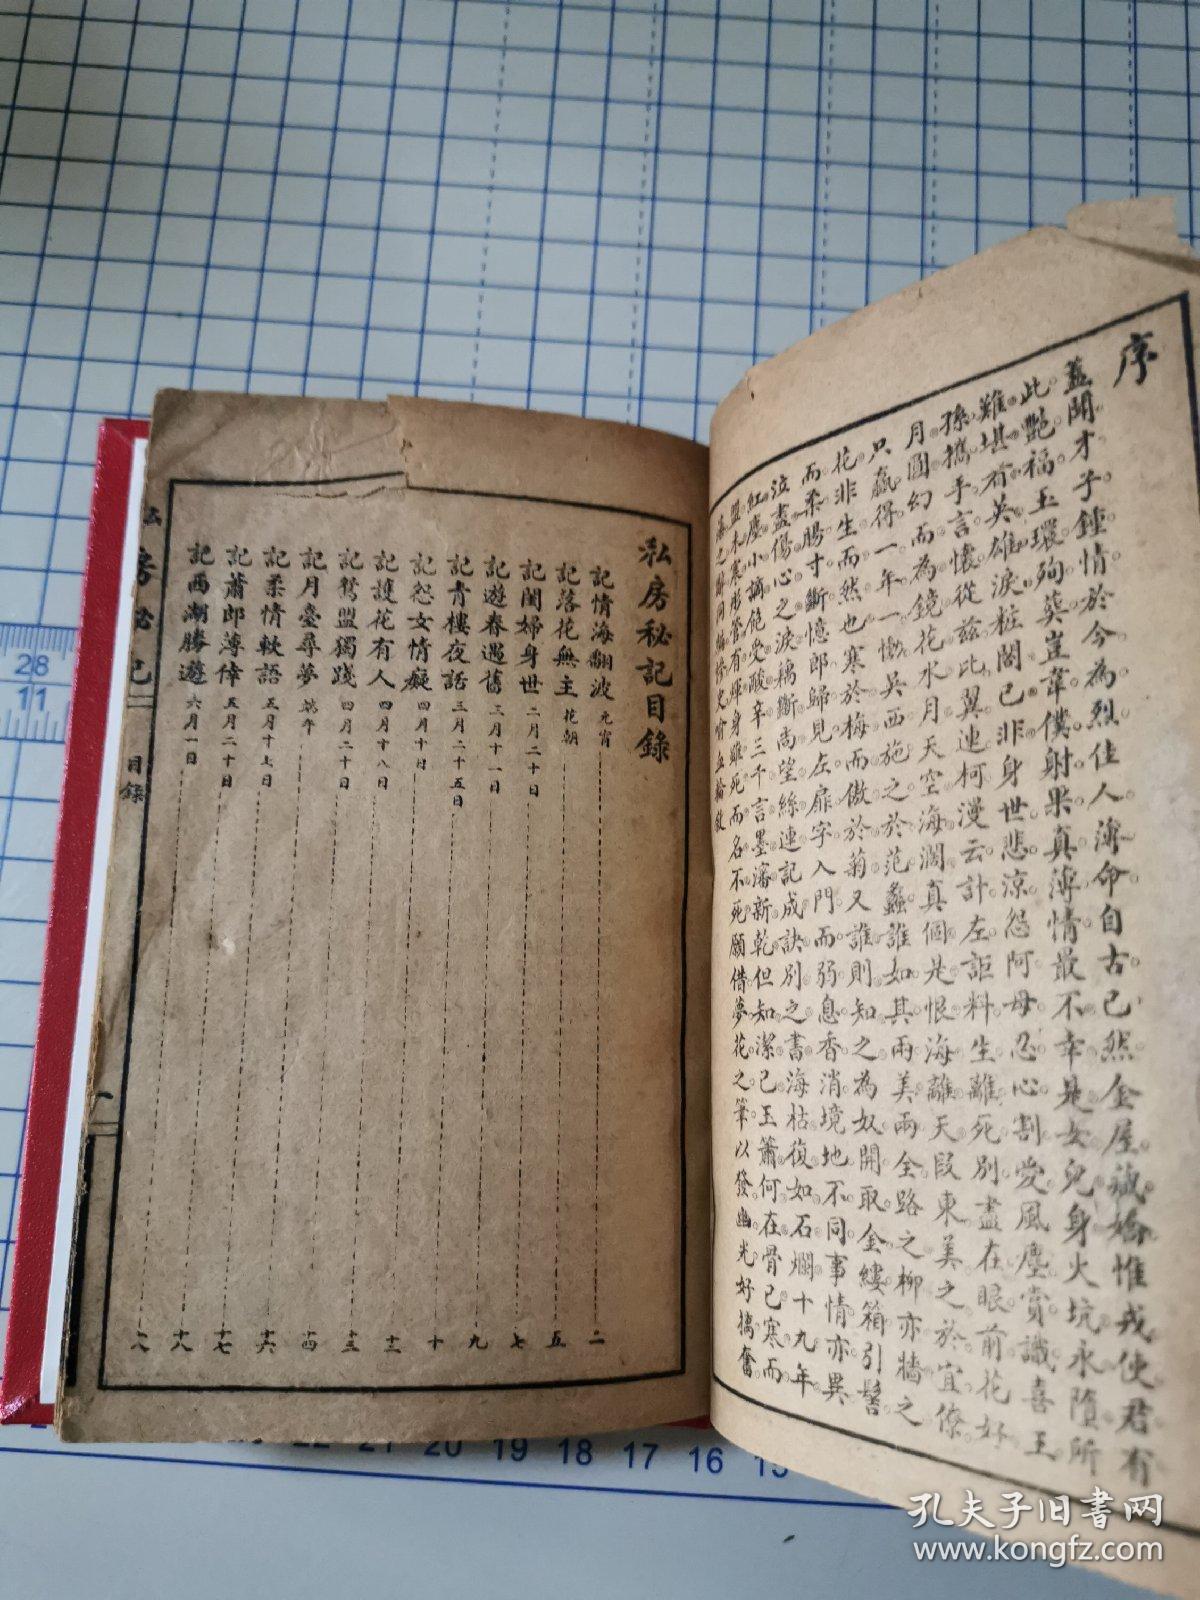 序
蓋聞才子鍾情於今為烈佳人薄命自古已然金屋藏嬌惟我使君有
此艷福玉環殉葬豈韋僕射果真薄情最不幸是女兒身火坑永墮所
難堪有英雄淚粧閣已非身世悲涼怨阿母忍心割愛風塵賞識喜王
孫攜手言懷從茲比翼連柯漫云計左詎料生離死別盡在眼前花好
月圓幻而為鏡花水月天空海濶真個是恨海離天段東美之於宜僚
只贏得一年一慟吳西施之於范蠡誰如其兩美兩全路之柳亦牆之
花非生而然也寒於梅而傲於菊又誰則知之為奴開取金縷箱引髻
而柔腸寸斷憶郎歸見左扉字入門而弱息香消境地不同事情亦異
泣盡傷心之淚藕斷尚望絲連記成訣別之書海枯復如石爛十九年
紅塵小謫飽受酸辛三千言墨瀋新乾但知潔己玉簫何在骨已寒而
盟未寒彤管有煇身雖死而名不死願借夢花之筆以發幽光好摛奮
藻之
私房秘記目錄
記情海翻波 元宵 二
記落花無主 花朝 五
記閨婦身世 二月二十日 七
記遊春遇舊 三月十一日 九
記青樓夜話 三月二十五日 十
記怨女情癡 四月十日 十二
記護花有人 四月十八日 十三
記鴛盟獨踐 四月二十日 十四
記月臺尋夢 端午
記柔情軟語 五月十七日 十六
記蕭郎薄倖 五月二十日 十七
記西湖勝遊 六月一日 十八
目錄
一
28
11
22 21 20 19 18 17 16 15
孔夫子旧书网
www.kongfz.com